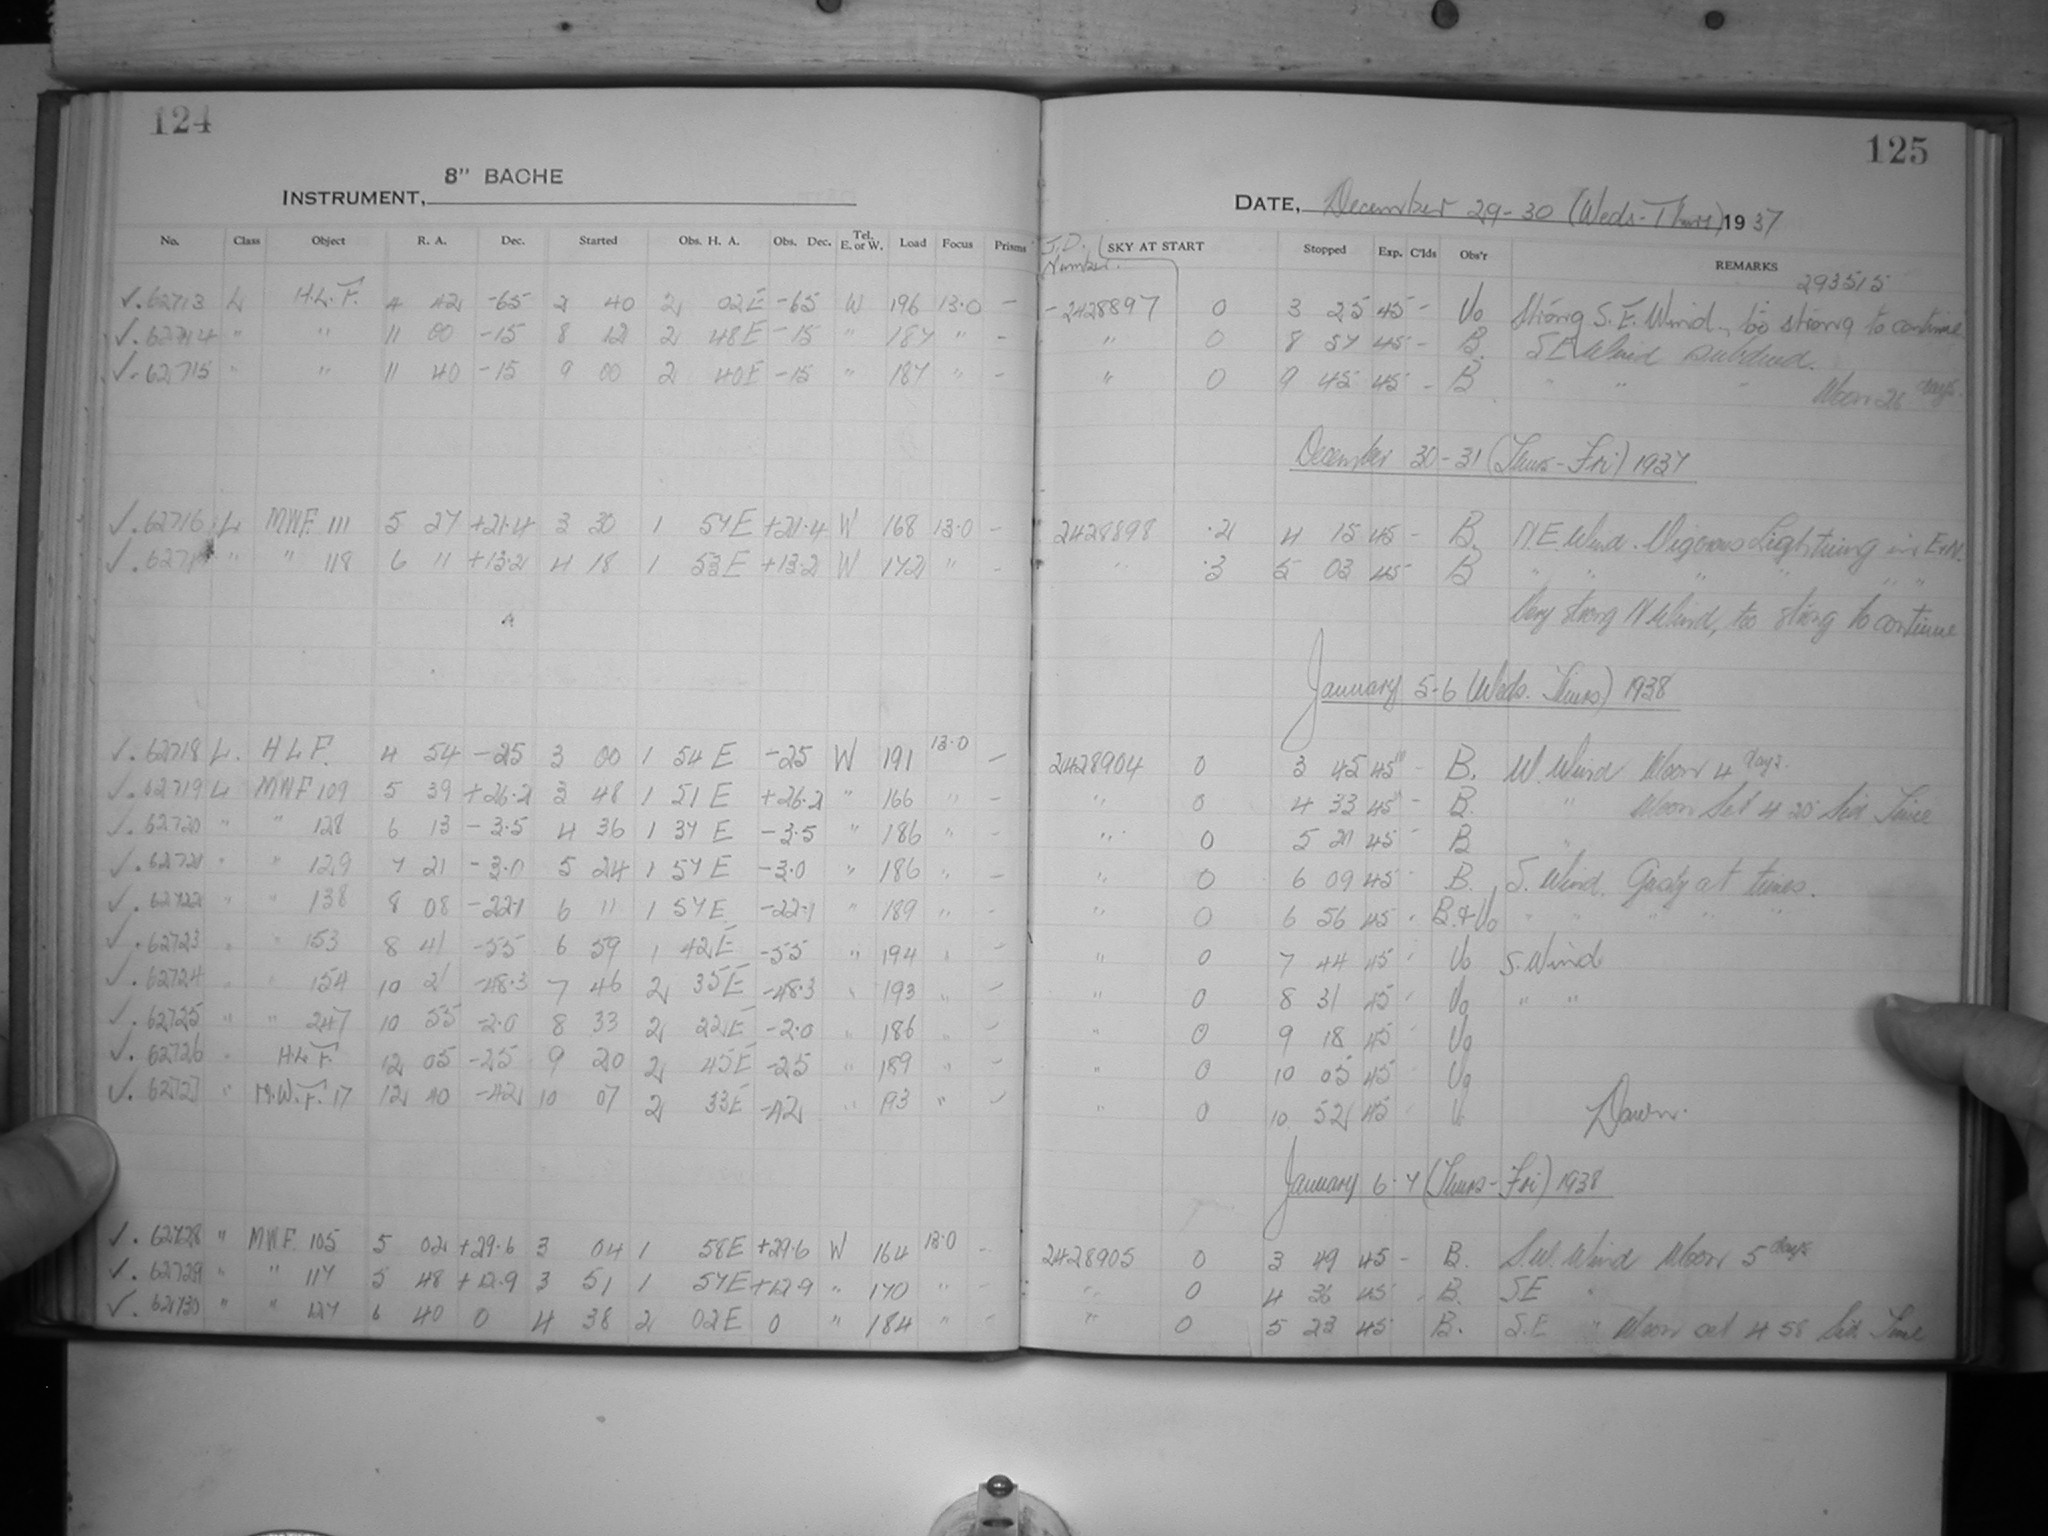 124
8" BACHE
INSTRUMENT,
No. Class Object R. A. Dec. Started Obs. H. A. Obs. Dec. Tel. E. or W. Load Focus Prisms
✓. 62713 L H.L.F. 4 42 -65 2 40 2 02E -65 W 196 13.0 -
✓. 62714 " " 11 00 -15 8 12 2 48E -15 " 187 " -
✓. 62715 " " 11 40 -15 9 00 2 40E -15 " 187 " -
✓. 62716 L MWF. 111 5 27 +21.4 3 30 1 57E +21.4 W 168 13.0 -
✓. 62717 " " 118 6 11 +13.2 4 18 1 53E +13.2 W 172 " -
✓. 62718 L. H L F. 4 54 -25 3 00 1 54 E -25 W 191 13.0 -
✓. 62719 L MWF 109 5 39 +26.2 3 48 1 51 E +26.2 " 166 " -
✓. 62720 " " 128 6 13 -3.5 4 36 1 37 E -3.5 " 186 " -
✓. 62721 " " 129 7 21 -3.0 5 24 1 57 E -3.0 " 186 " -
✓. 62722 " " 138 8 08 -22.1 6 11 1 57E -22.1 " 189 " -
✓. 62723 " " 153 8 41 -55 6 59 1 42E -55 " 194 " -
✓. 62724 " " 154 10 21 -48.3 7 46 2 35E -48.3 " 193 " -
✓. 62725 " " 247 10 55 -2.0 8 33 2 22E -2.0 " 186 " -
✓. 62726 " H.L.F. 12 05 -25 9 20 2 45E -25 " 189 " -
✓. 62727 " M.W.F. 17 12 40 -42 10 07 2 33E -42 " 193 " -
✓. 62728 " MWF. 105 5 02 +29.6 3 04 1 58E +29.6 W 164 13.0 -
✓. 62729 " " 117 5 48 +12.9 3 51 1 57E +12.9 " 170 " -
✓. 62730 " " 127 6 40 0 4 38 2 02E 0 " 184 " -
125
DATE, December 29-30 (Weds-Thurs) 1937
J.D. Number. SKY AT START Stopped Exp. C'lds Obs'r REMARKS
293515
-2428897 0 3 25 45 - Vo Strong S.E. Wind, too strong to continue
" 0 8 57 45 - B. SE Wind subdued.
" 0 9 45 45 - B " " " Moon 26 days.
December 30-31 (Thurs-Fri) 1937
2428898 .2 4 15 45 - B. N.E. Wind. Vigorous Lightning in E+N.
" .3 5 03 45 - B " " " " "
Very strong N Wind, too strong to continue
January 5-6 (Weds. Thurs) 1938
2428904 0 3 45 45 - B. W. Wind Moon 4 days.
" 0 4 33 45 - B. " Moon Set 4 20 Sid Time
" 0 5 21 45 - B "
" 0 6 09 45 - B. S. Wind. Gusty at times.
" 0 6 56 45 - B.+Vo " " " " "
" 0 7 44 45 - Vo S. Wind
" 0 8 31 45 - Vo " "
" 0 9 18 45 - Vo
" 0 10 05 45 - Vo
" 0 10 52 45 - V Dawn.
January 6-7 (Thurs-Fri) 1938
2428905 0 3 49 45 - B. S.W. Wind Moon 5 days
" 0 4 36 45 - B. SE "
" 0 5 23 45 B. S.E " Moon set 4 58 Sid Time